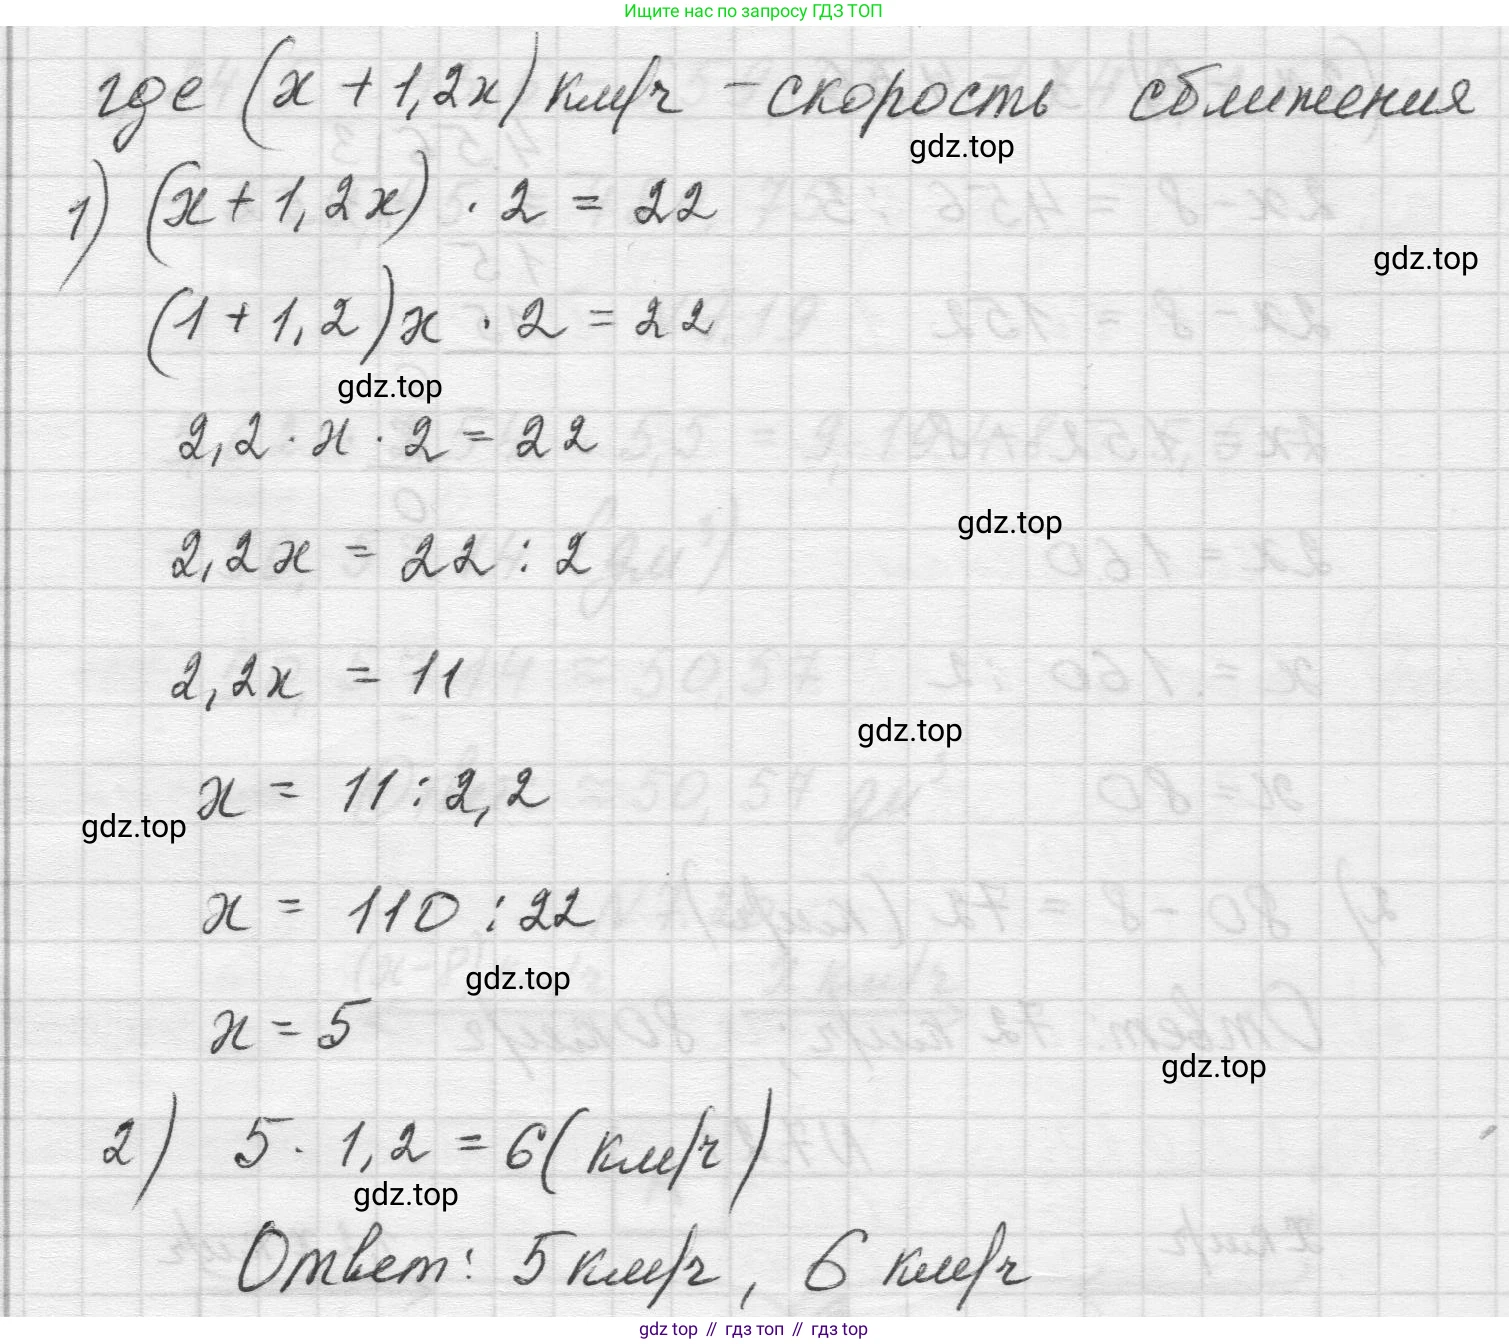 Ищите нас по запросу ГДЗ ТОП
где (x + 1,2x) км/ч - скорость сближения
gdz.top
1) (x + 1,2x) · 2 = 22
gdz.top
(1 + 1,2)x · 2 = 22
gdz.top
2,2 · x · 2 = 22
gdz.top
2,2x = 22 : 2
2,2x = 11
gdz.top
x = 11 : 2,2
gdz.top
x = 110 : 22
gdz.top
x = 5
gdz.top
2) 5 · 1,2 = 6 (км/ч)
gdz.top
Ответ: 5 км/ч, 6 км/ч
gdz top // гдз топ // гдз top